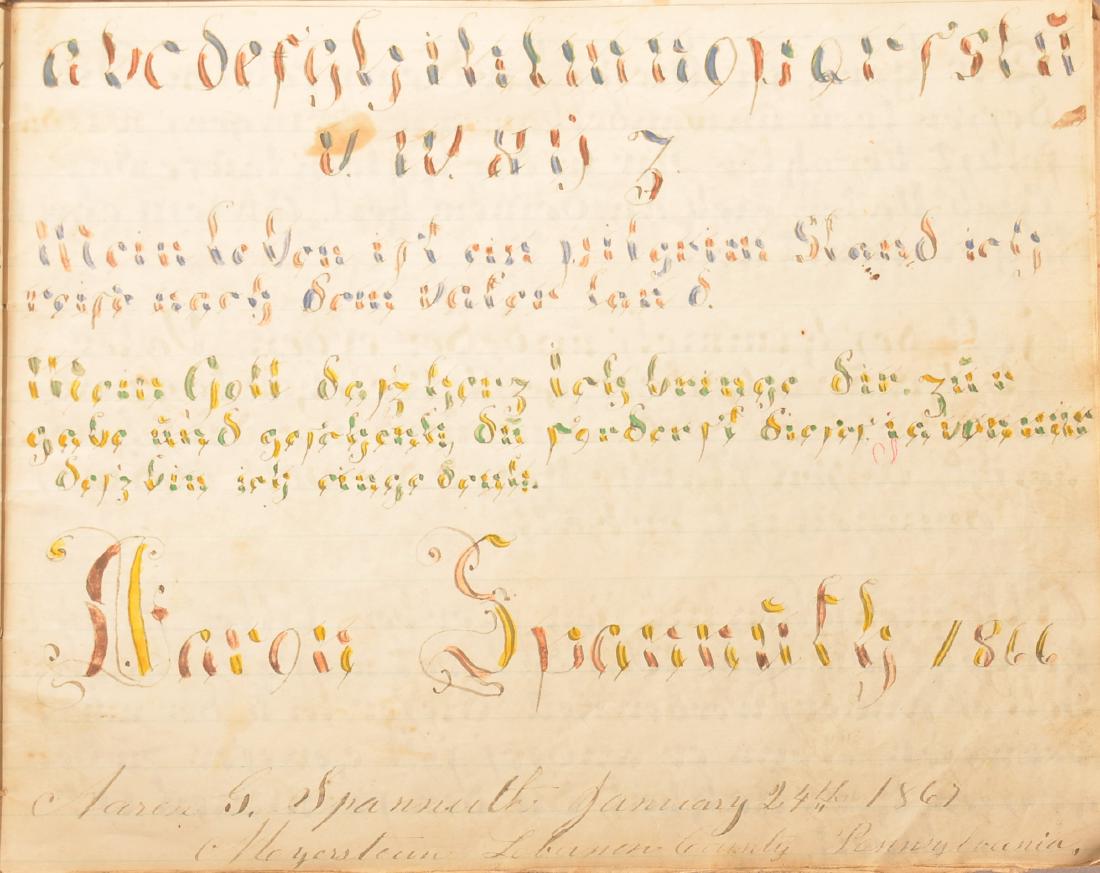 abcdefghiklmnopqrſstŭ
v. w. x y z.
Mein leben iſt ein pilgrim Stand ich
reiſe nach dem vater land.
Mein Gott daſz herz Ich bringe dir. zŭr
gabe ŭnd geſchenk dŭ forderſt dieſes ja von mir
deſz bin ich eingedenk.
Aaron Spannŭth 1866
Aaron G. Spannuth January 24th 1867
Meyerstown Lebanon County Pennsylvania.